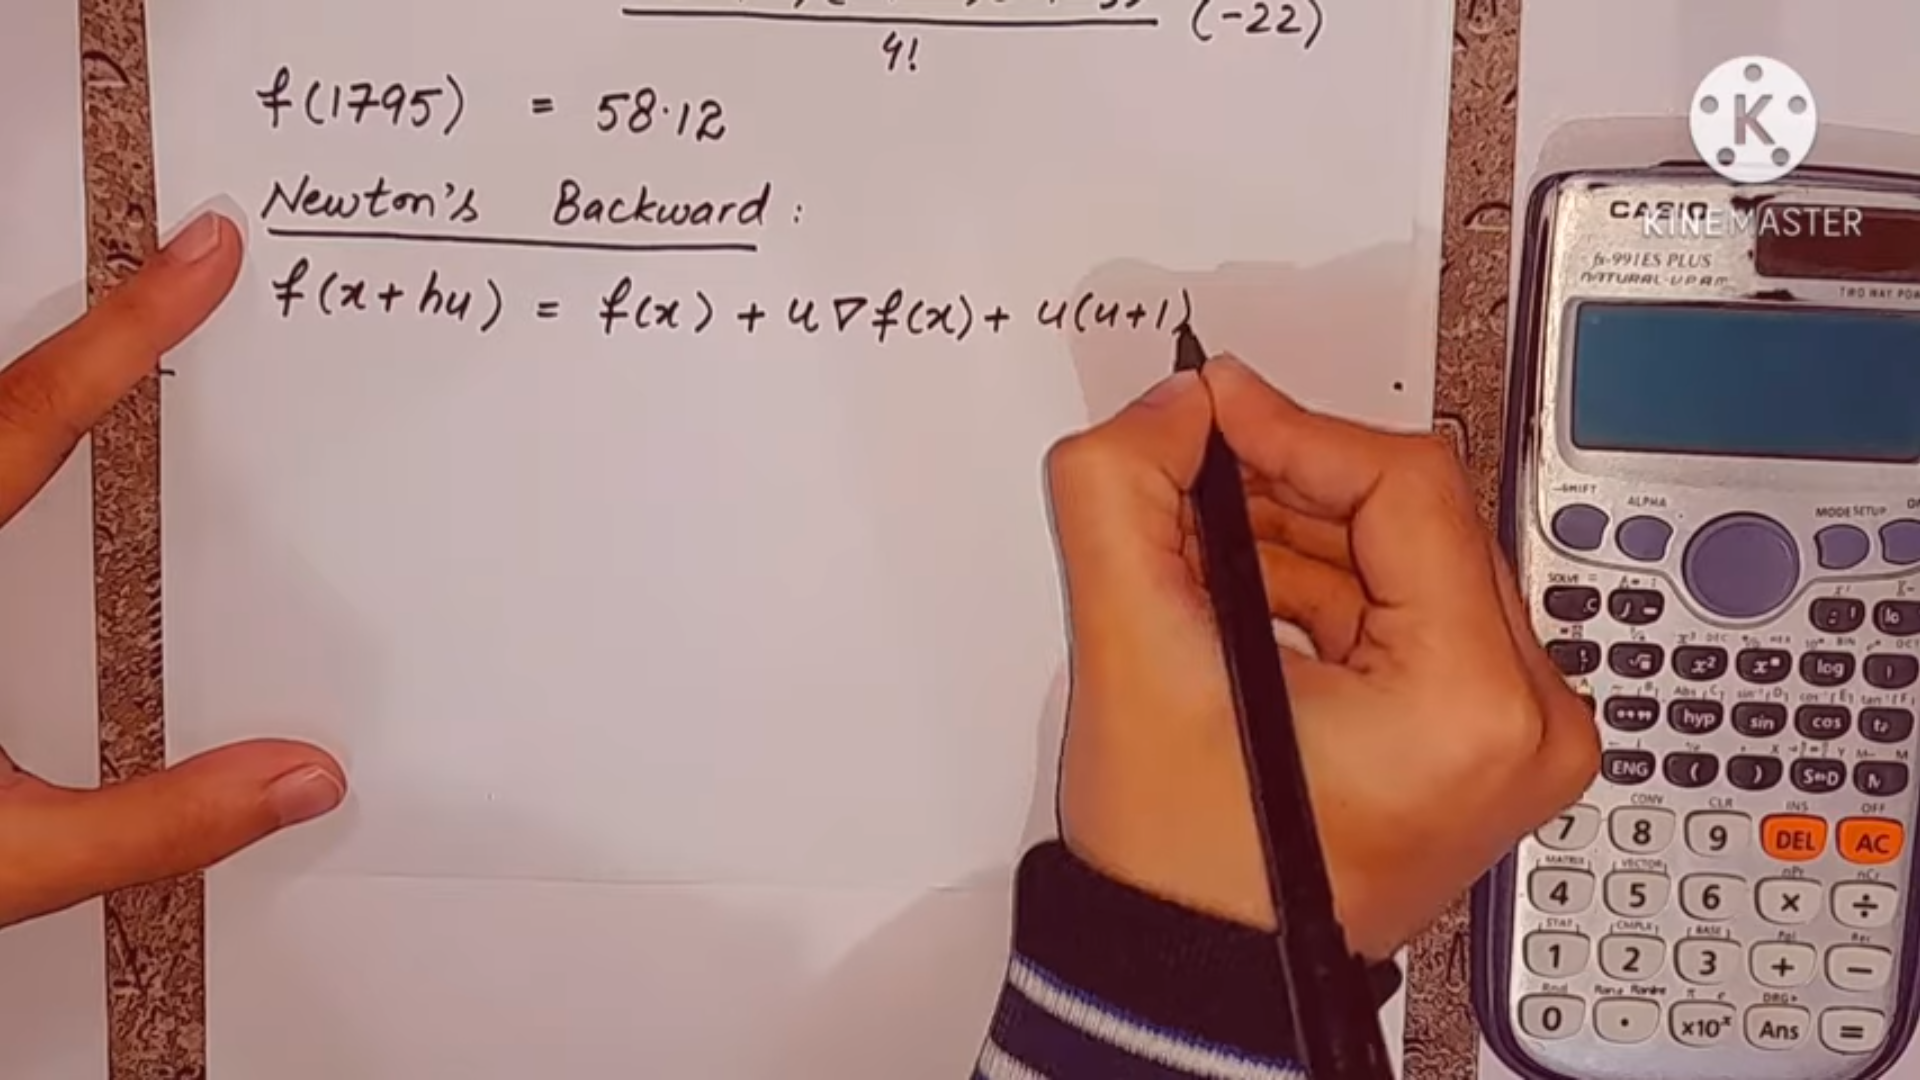 (-22)
4!
f(1795) = 58.12
Newton's Backward :
f(x+hu) = f(x) + u∇f(x) + u(u+1)
K
KINEMASTER
CASIO
fx-991ES PLUS
NATURAL-V.P.A.M.
TWO WAY POW
SHIFT ALPHA MODE SETUP
SOLVE =
x² log
hyp sin cos
ENG ( ) S⇔D
CONV CLR INS OFF
7 8 9 DEL AC
MATRIX VECTOR nPr nCr
4 5 6 × ÷
STAT CMPLX BASE Pol Rec
1 2 3 + −
Rnd Ran# RanInt π e DRG▸
0 . ×10ˣ Ans =